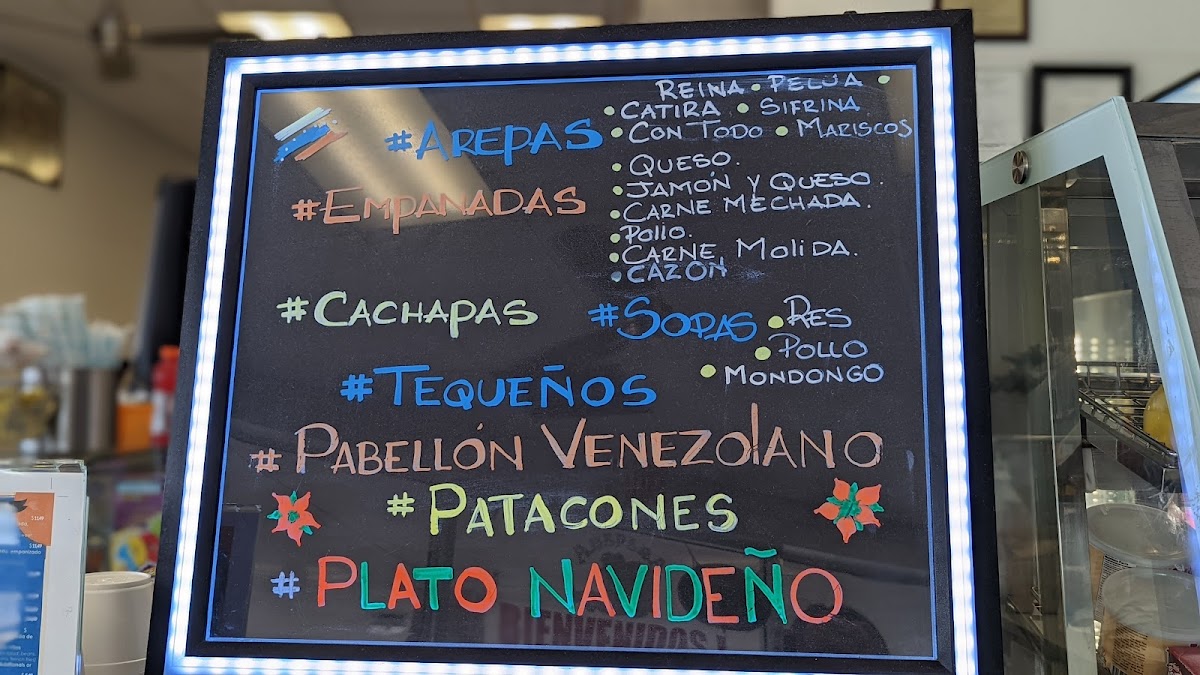 REINA • PELUA •
#AREPAS
• CATIRA • SIFRINA
• CON TODO • MARISCOS
#EMPANADAS
• QUESO.
• JAMÓN Y QUESO.
• CARNE MECHADA.
• Pollo.
• CARNE MOLIDA.
• CAZÓN
#CACHAPAS
#SOPAS • RES
• POLLO
• MONDONGO
#TEQUEÑOS
#PABELLÓN VENEZOLANO
#PATACONES
#PLATO NAVIDEÑO
BIENVENIDOS!